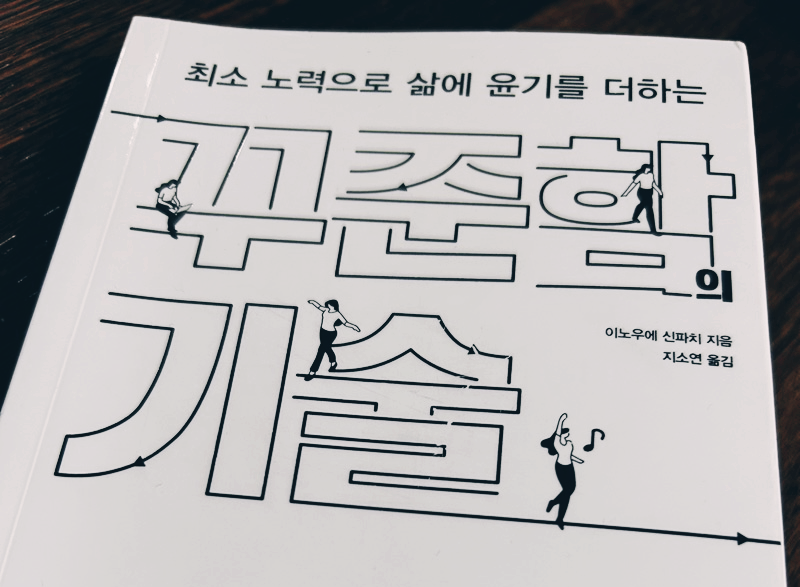 최소 노력으로 삶에 윤기를 더하는
꾸준함의
기술
이노우에 신파치 지음
지소연 옮김